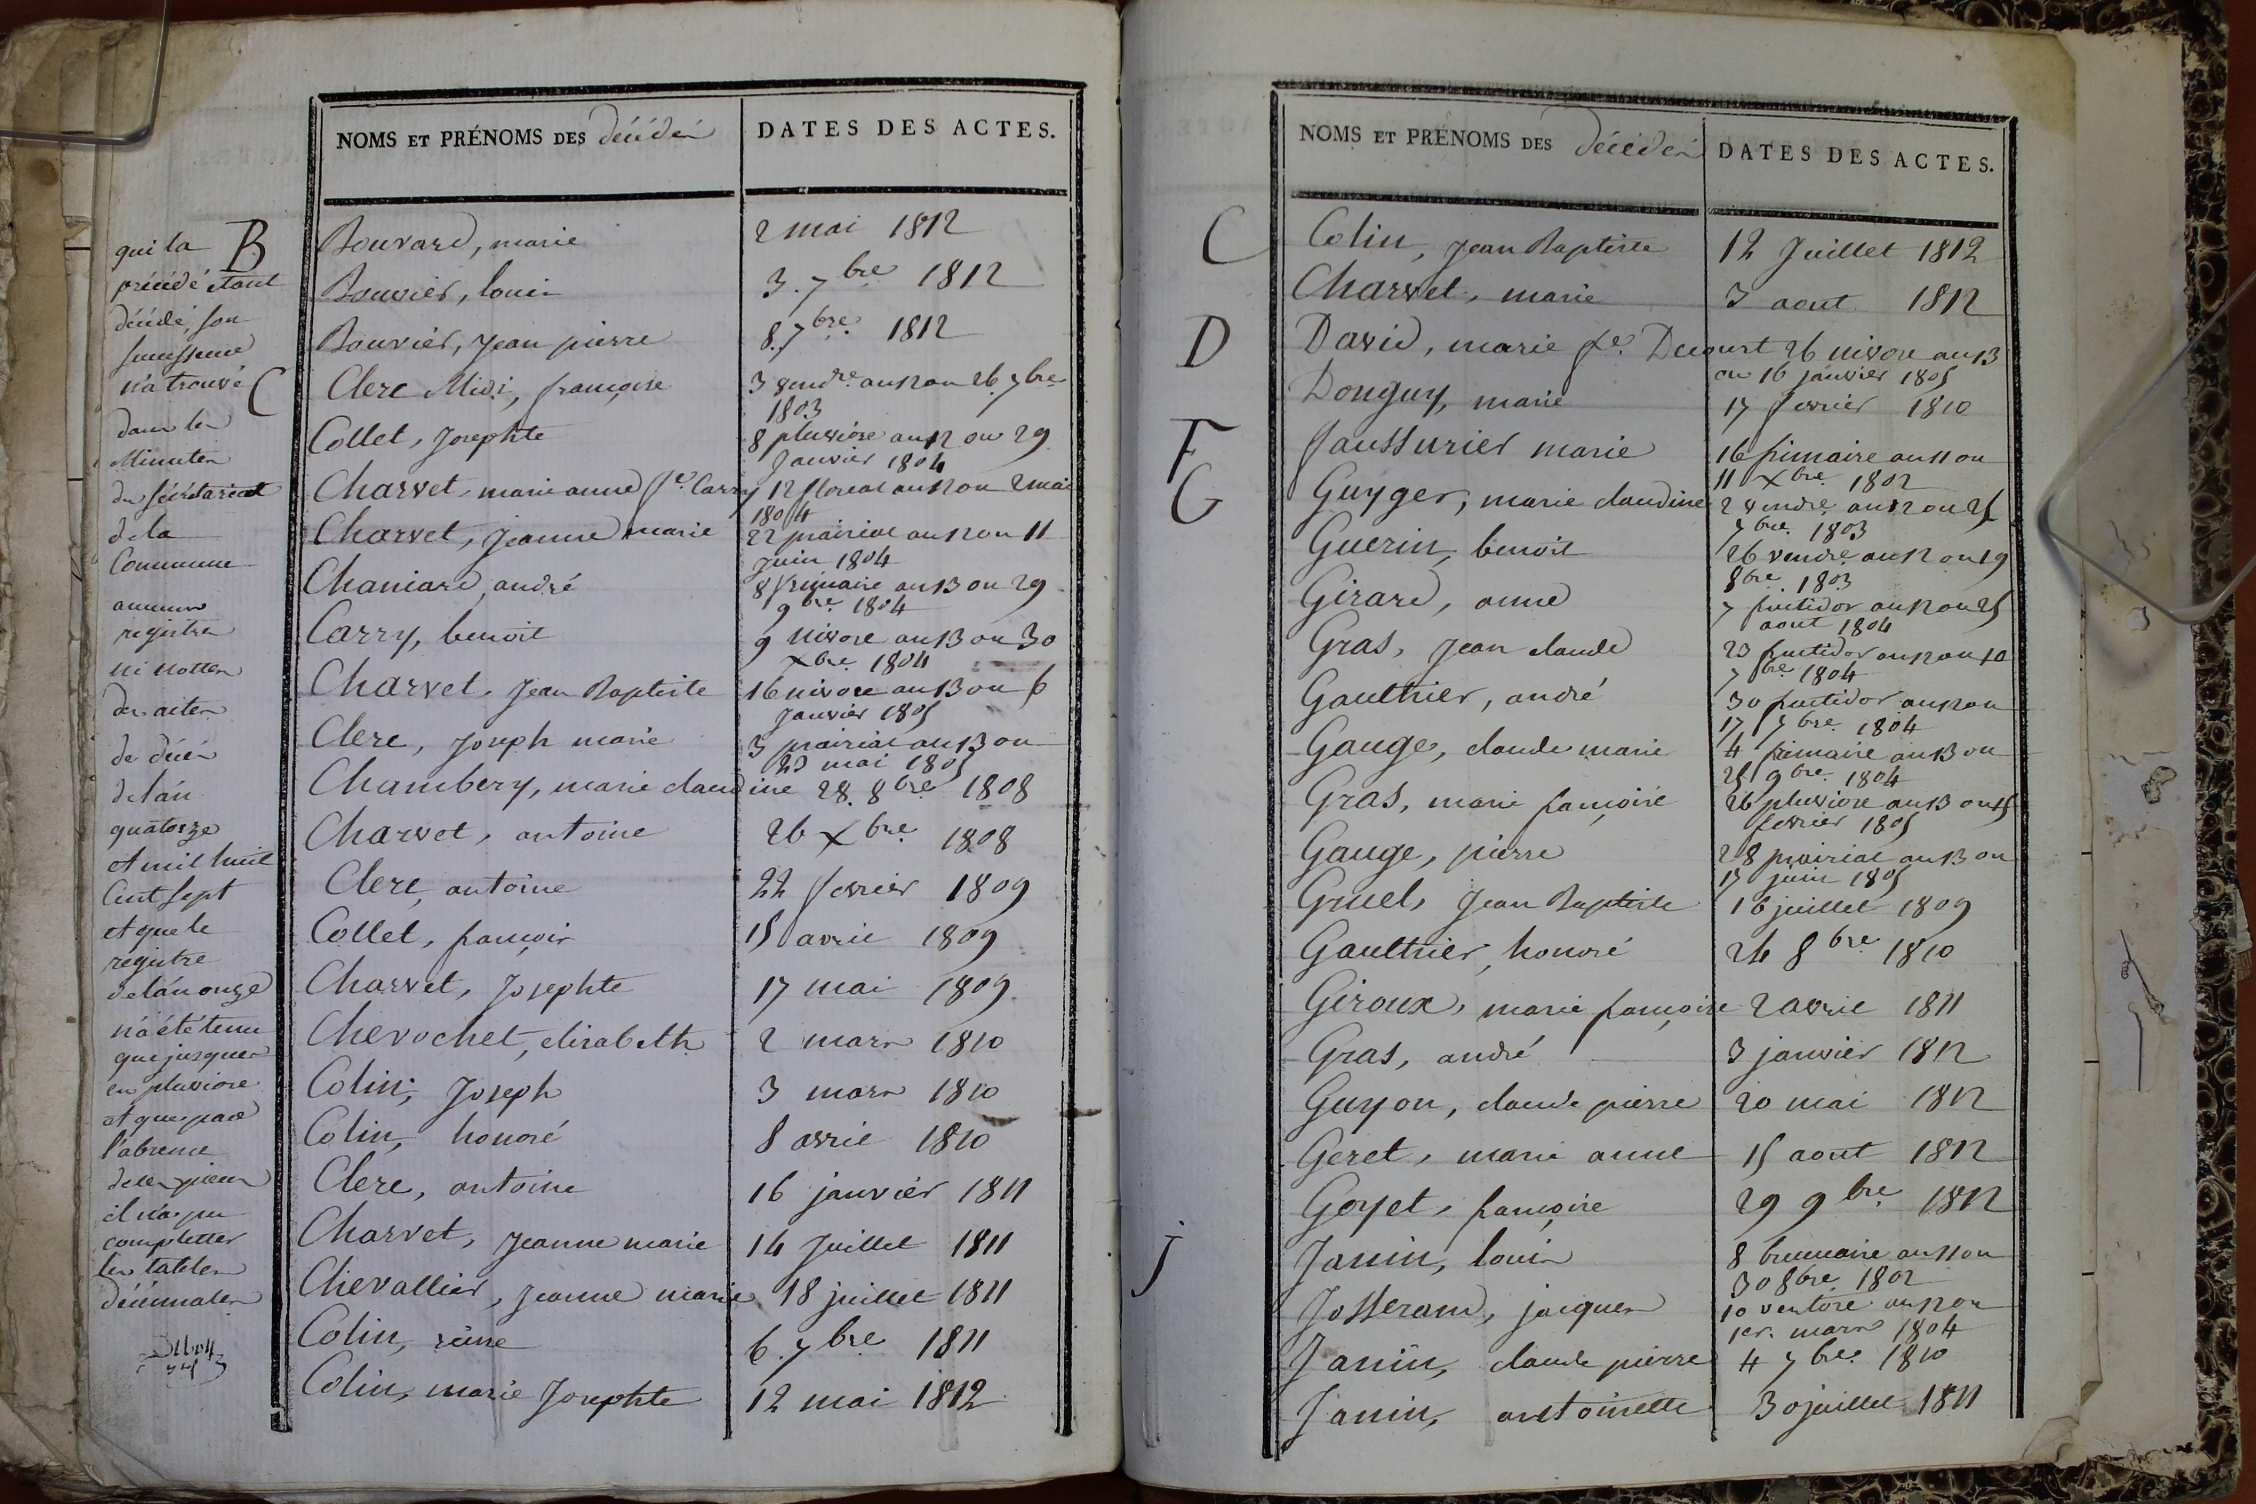 NOMS ET PRÉNOMS DES décédés DATES DES ACTES.
B
Bouvard, marie 2 mai 1812
Bouvier, louis 3. 7bre 1812
Bouvier, Jean pierre 8. 7bre. 1812
C
Clerc Midi, françoise 3 vendre. an 12 ou 26. 7bre
1803
Collet, Josephte 8 pluviose an 12 ou 29
Janvier 1804
Charvet, marie anne fe. Carry 12 floreal an 12 ou 2 mai
1804
Charvet, Jeanne marie 22 prairial an 12 ou 11
Juin 1804
Chaniard, andré 8 frimaire an 13 ou 29
9bre. 1804
Carry, benoit 9 nivose an 13 ou 30
xbre. 1804
Charvet, Jean Baptiste 16 nivose an 13 ou 6
Janvier 1805
Clerc, Joseph marie 3 prairial an 13 ou
23 mai 1805
Chambery, marie claudine 28. 8bre 1808
Charvet, antoine 26 xbre. 1808
Clerc, antoine 22 fevrier 1809
Collet, françois 15 avril 1809
Charvet, Josephte 17 mai 1809
Chevochet, elisabeth 2 mars 1810
Colin, Joseph 3 mars 1810
Colin, honoré 8 avril 1810
Clerc, antoine 16 janvier 1811
Charvet, Jeanne marie 14 Juillet 1811
Chevallier, Jeanne marie 18 juillet 1811
Colin, reine 6. 7bre 1811
Colin, marie Josephte 12 mai 1812
qui la
précédé étant
décédé, son
successeur
n'a trouvé
dans les
Minutes
du Sécrétariat
de la
Commune
aucuns
registres
ni nottes
des actes
de décès
de l'an
quatorze
et mil huit
Cent Sept
et que le
registre
de l'an onze
n'a été tenu
que jusques
en pluviose
et que par
l'absence
de ces pièces
il n'a pu
completter
les tables
décennales
NOMS ET PRÉNOMS DES décédés DATES DES ACTES.
C
Colin, Jean Baptiste 12 Juillet 1812
Charvet, marie 3 aout 1812
D
David, marie fe. Decourt 26 nivose an 13
ou 16 janvier 1805
Donguy, marie 17 fevrier 1810
F
faussurier marie 16 frimaire an 11 ou
11 xbre. 1802
G
Guyger, marie claudine 2 vendre. an 12 ou 25
7bre. 1803
Guerin, benoit 26 vendre. an 12 ou 19
8bre. 1803
Girard, anne 7 fructidor an 12 ou 25
aout 1804
Gras, Jean claude 23 fructidor an 12 ou 10
7bre. 1804
Gaulthier, andré 30 fructidor an 12 ou
17 7bre. 1804
Gauge, claude marie 4 frimaire an 13 ou
25 9bre. 1804
Gras, marie françoise 26 pluviose an 13 ou 15
fevrier 1805
Gauge, pierre 28 prairial an 13 ou
17 juin 1805
Gruel, Jean Baptiste 16 juillet 1809
Gaulthier, honoré 24 8bre 1810
Giroux, marie françoise 2 avril 1811
Gras, andré 3 janvier 1812
Guyon, claude pierre 20 mai 1812
Geret, marie anne 15 aout 1812
Goyet, françoise 29 9bre 1812
J
Janin, louis 8 brumaire an 11 ou
30 8bre. 1802
Josserand, jacques 10 ventose an 12 ou
1er. mars 1804
Janin, claude pierre 4 7bre. 1810
Janin, antoinette 30 juillet 1811